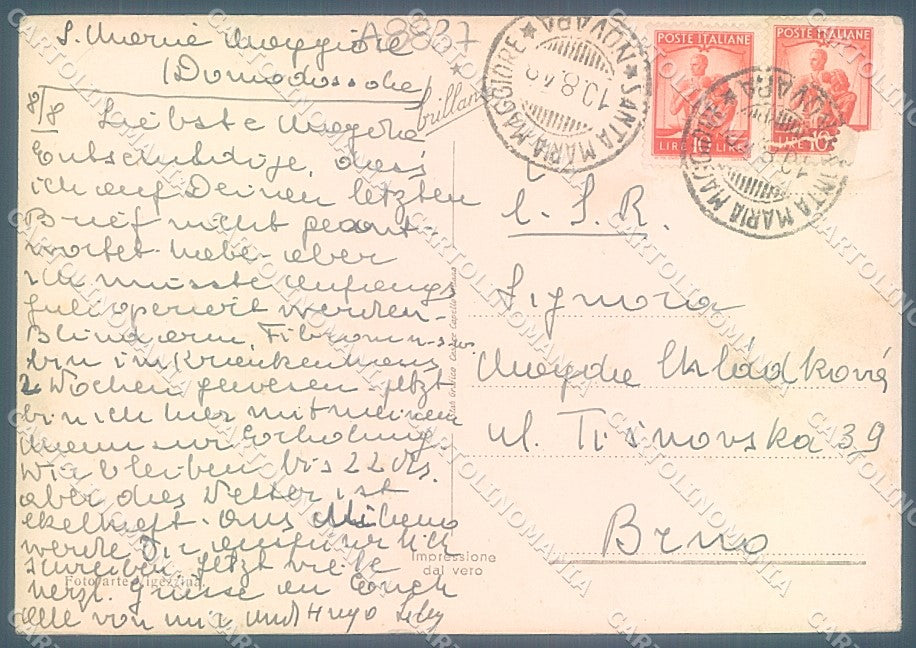 A8837
S. Maria Maggiore
(Domodossola)
8/8 Liebste Magda
Entschuldige dass
ich auf Deinen letzten
Brief nicht geant-
wortet habe aber
ich musste
operiert werden-
Blinddarm, Fibrom
bin im Krankenhaus
2 Wochen gewesen jetzt
bin ich hier mit meinem
Mann zur Erholung
Wir bleiben bis 22 VIII.
aber das Wetter ist
ekelhaft. Aus Milano
werde Dir ausführlich
schreiben. Jetzt viele
herzl. Grüsse an Euch
alle von mir und Hugo
brillant
SANTA MARIA MAGGIORE
* NOVARA *
10.8.48
POSTE ITALIANE
LIRE 10
POSTE ITALIANE
LIRE 10
SANTA MARIA MAGGIORE
* NOVARA *
Č.S.R.
Signora
Magda Chládková
ul. Tišnovska 39
Brno
Impressione
dal vero
Fotoarte Vigezzina
CARTOLINOMANIA